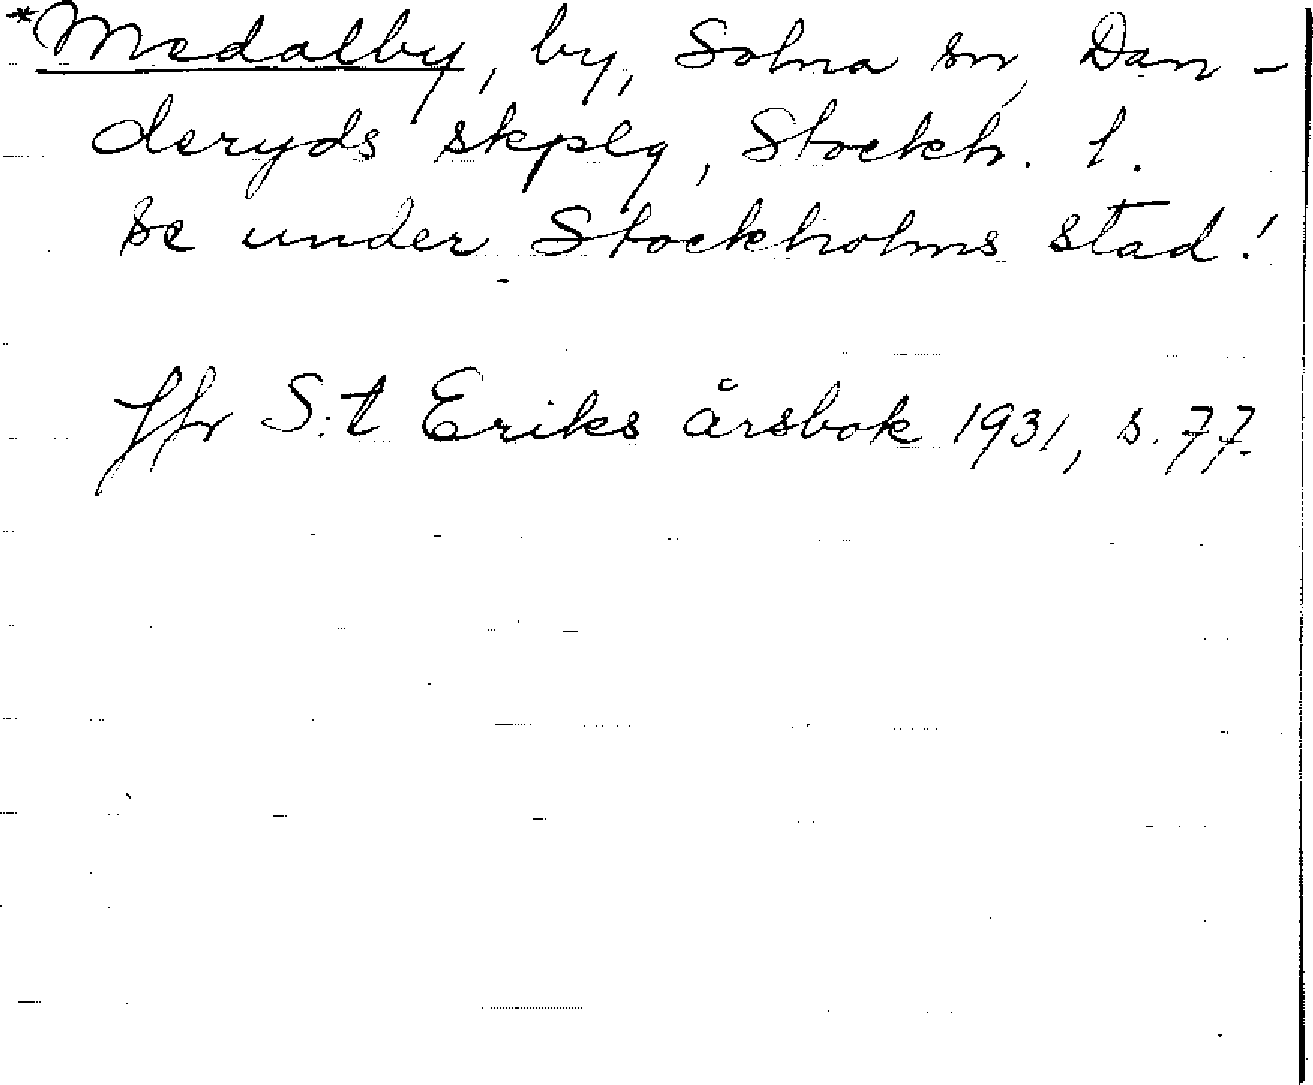 *Medalby, by, Solna sn, Dan-
deryds skplg, Stockh. l.
se under Stockholms stad!
Jfr S:t Eriks årsbok 1931, s. 77.